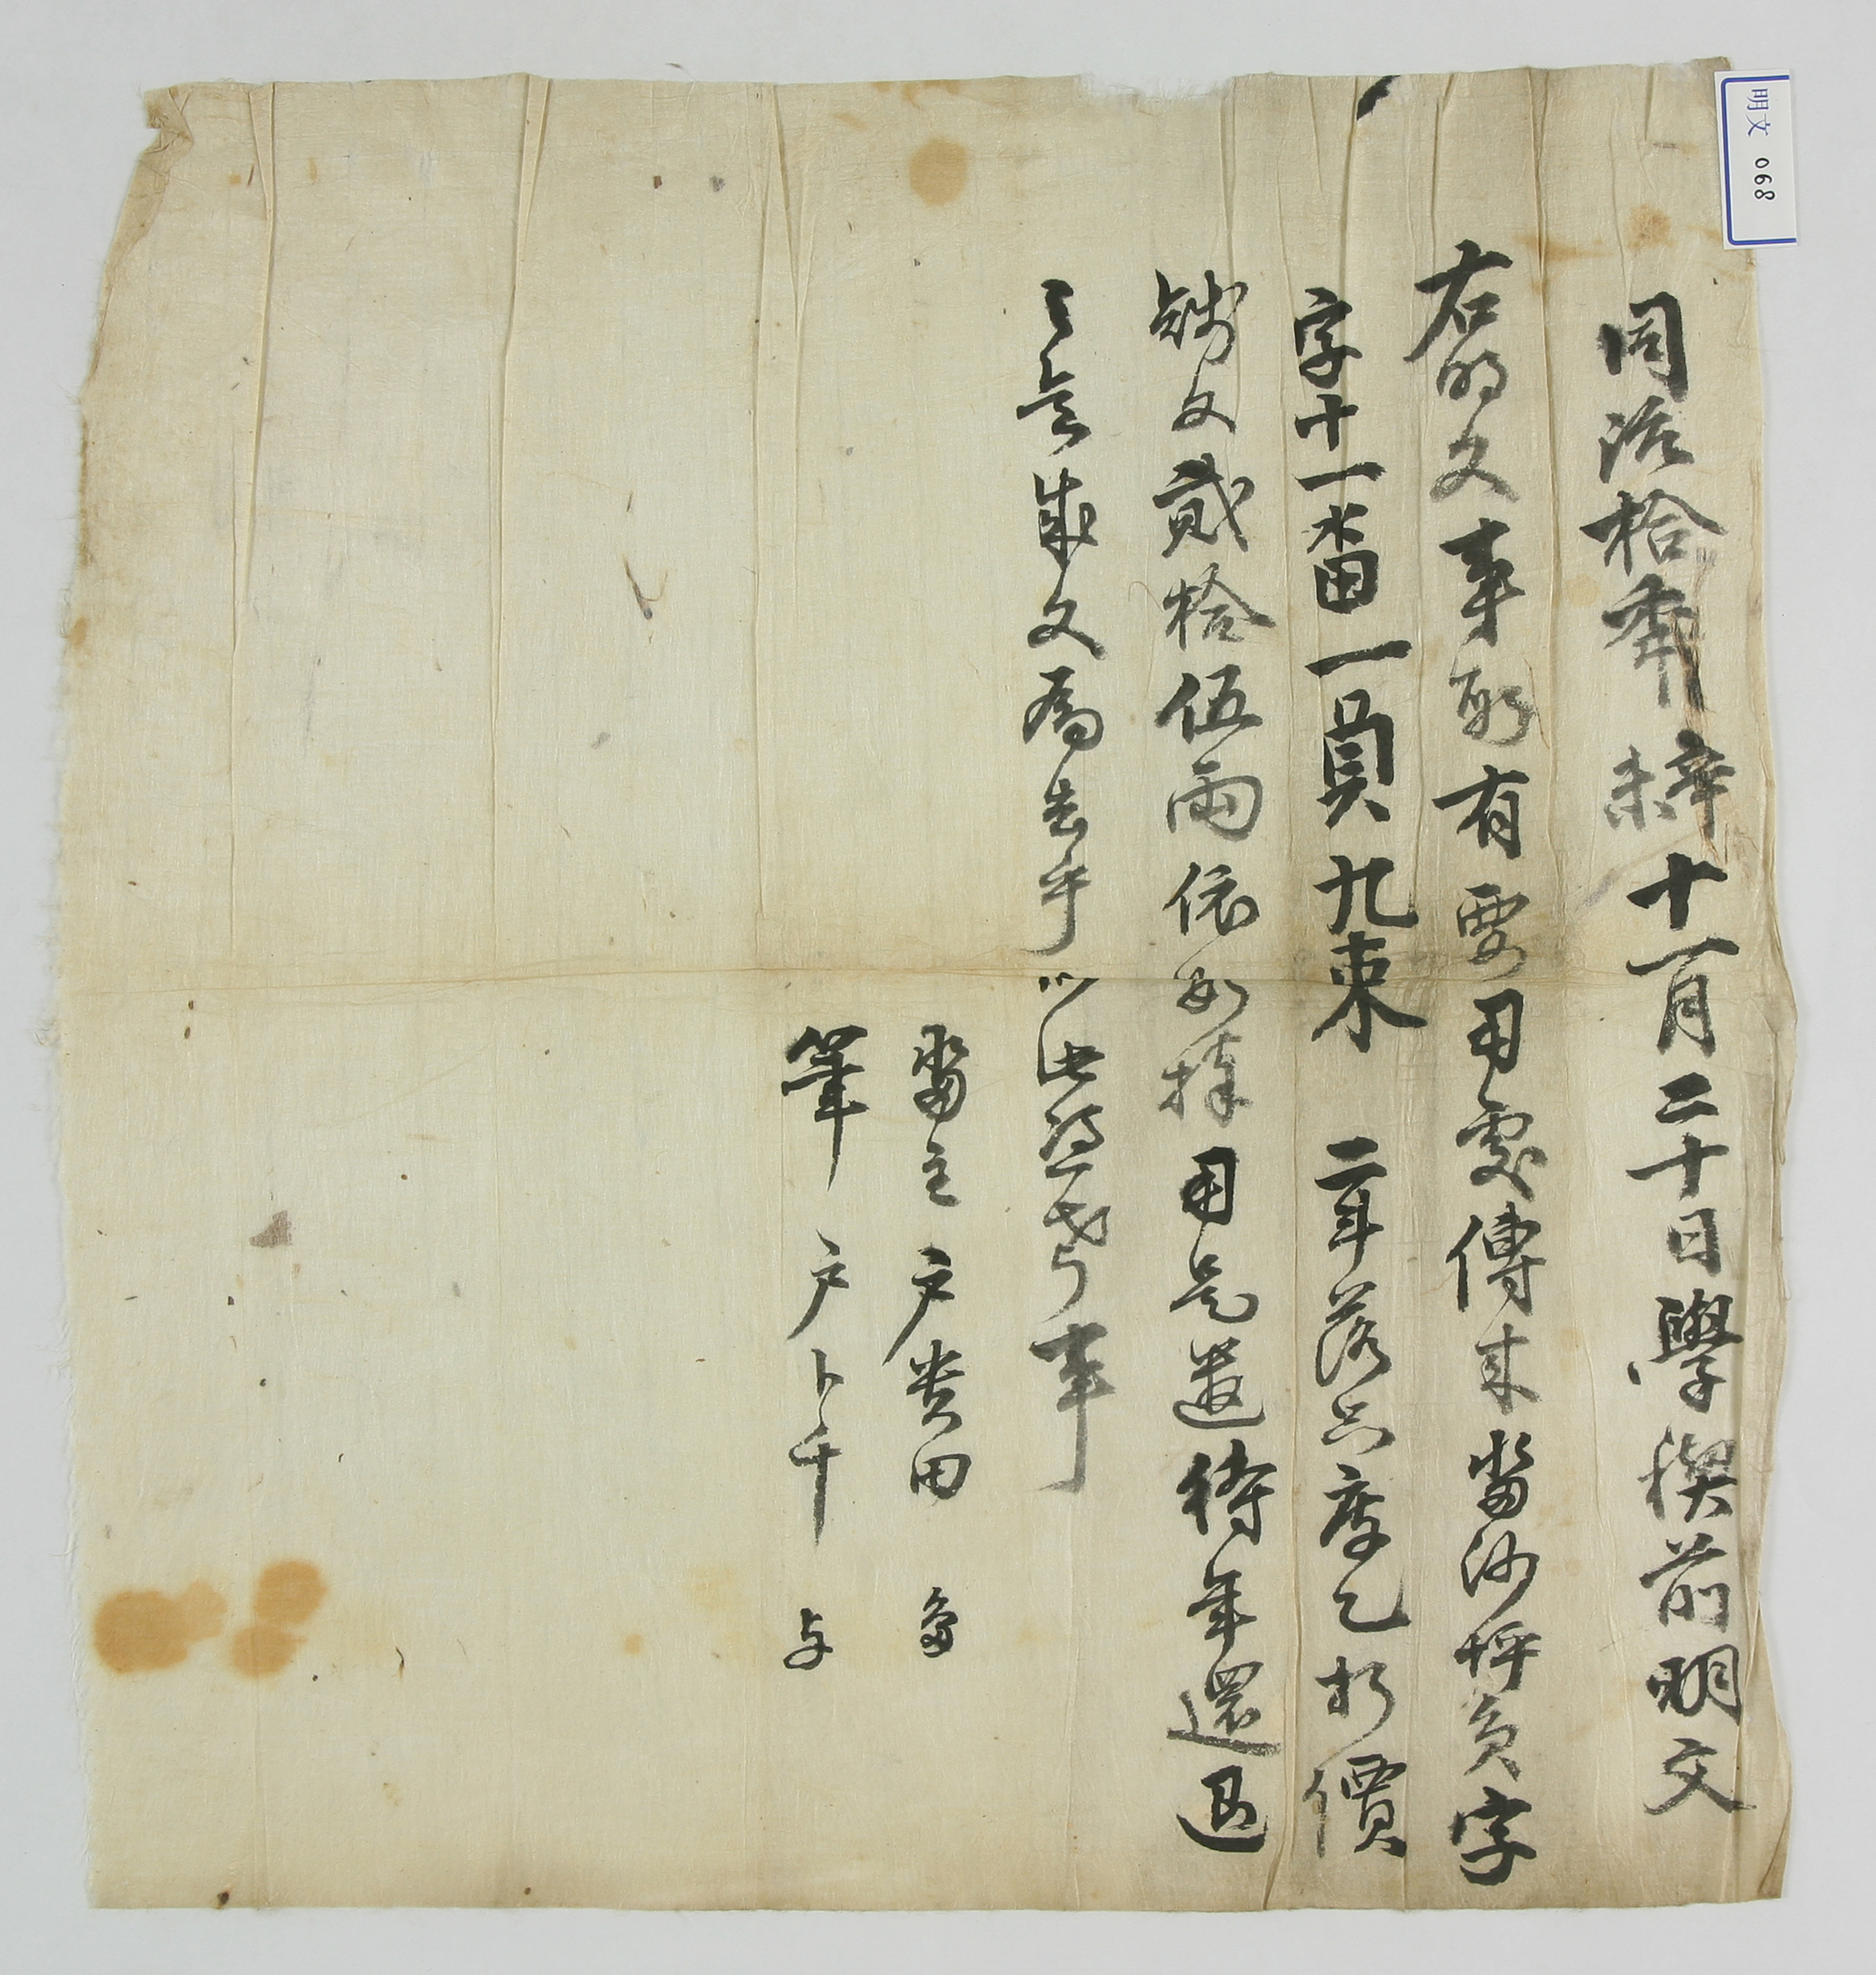 同治拾年辛未十一月二十日學稧前明文
右明文事段有要用處傳來畓沙坪負字
字十一畓一員九束 二斗落只庫乙折價
錢文貳拾伍兩依數捧用是遣待年還退
之意成文爲去乎以此憑考事
畓主 戶贵田
筆 戶卜千
明文 068